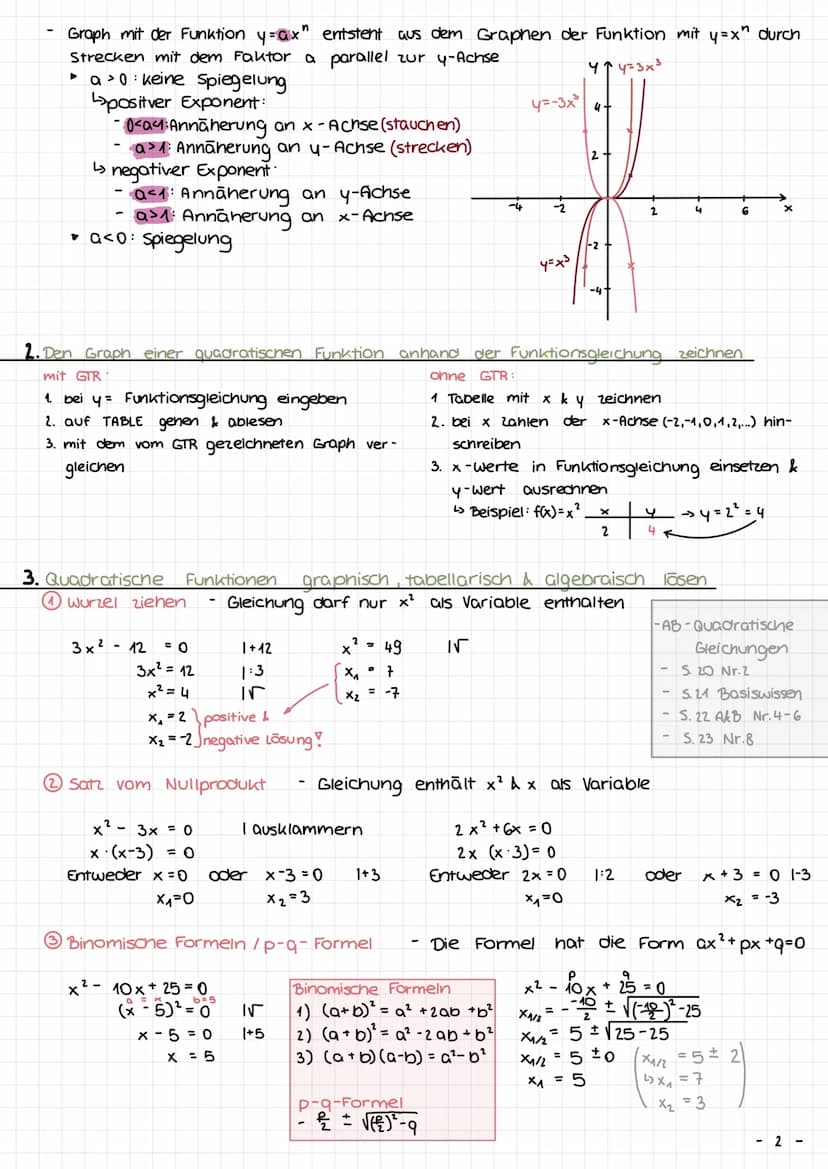 - Graph mit der Funktion y=axⁿ entsteht aus dem Graphen der Funktion mit y=xⁿ durch
Strecken mit dem Faktor a parallel zur y-Achse
▸ a>0: keine Spiegelung
↳positver Exponent:
- 0<a<1: Annäherung an x-Achse (stauchen)
- a>1: Annäherung an y-Achse (strecken)
↳ negativer Exponent:
- a<1: Annäherung an y-Achse
- a>1: Annäherung an x-Achse
▸ a<0: Spiegelung
y y=3x³
y=-3x³ 4
2
-4 -2 2 4 6 x
-2
y=x³
-4
2. Den Graph einer quadratischen Funktion anhand der Funktionsgleichung zeichnen
mit GTR:
1. bei y= Funktionsgleichung eingeben
2. auf TABLE gehen & ablesen
3. mit dem vom GTR gezeichneten Graph ver-
gleichen
ohne GTR:
1 Tabelle mit x & y zeichnen
2. bei x Zahlen der x-Achse (-2,-1,0,1,2,...) hin-
schreiben
3. x-Werte in Funktionsgleichung einsetzen &
y-Wert ausrechnen
↳ Beispiel: f(x)=x² x | y → y=2²=4
2 | 4
3. Quadratische Funktionen graphisch, tabellarisch & algebraisch lösen
① Wurzel ziehen - Gleichung darf nur x² als Variable enthalten
3x² - 12 = 0 |+12
3x² = 12 |:3
x² = 4 |√
x₁ = 2 } positive &
x₂ = -2 } negative Lösung!
x² = 49 |√
x₁ = 7
x₂ = -7
-AB-Quadratische
Gleichungen
- S. 20 Nr.2
- S.21 Basiswissen
- S. 22 A&B Nr.4-6
- S. 23 Nr.8
② Satz vom Nullprodukt - Gleichung enthält x² & x als Variable
x² - 3x = 0 | ausklammern
x · (x-3) = 0
Entweder x=0 oder x-3=0 |+3
x₁=0 x₂=3
2x² +6x = 0
2x (x·3) = 0
Entweder 2x=0 |:2 oder x+3 = 0 |-3
x₁=0 x₂ = -3
③ Binomische Formeln / p-q-Formel - Die Formel hat die Form ax²+px+q=0
x² - 10x + 25 = 0
a = x b=5
(x - 5)² = 0 |√
x - 5 = 0 |+5
x = 5
Binomische Formeln
1) (a+b)² = a² +2ab +b²
2) (a+b)² = a² -2ab + b²
3) (a+b)(a-b) = a²-b²
p-q-Formel
- p/2 ± √((p/2)²-q)
p q
x² - 10x + 25 = 0
x₁/₂ = - -10/2 ± √((-10/2)²-25)
x₁/₂ = 5 ± √25-25
x₁/₂ = 5 ±0
x₁ = 5
(x₁/₂ = 5 ± 2
↳x₁ = 7
x₂ = 3)
- 2 -